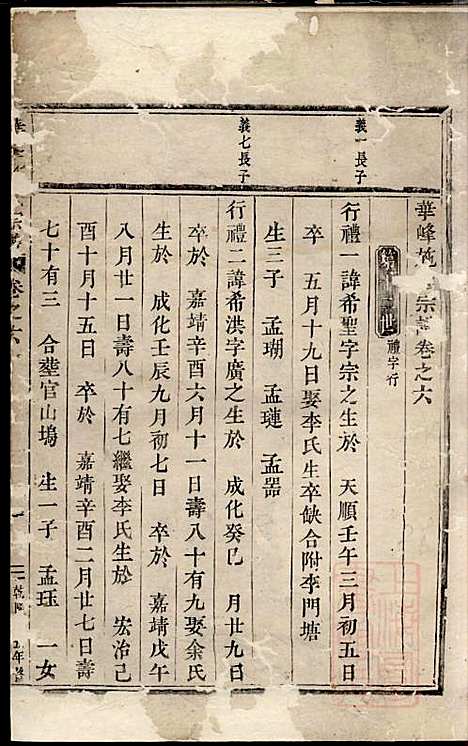 華峰 宗譜卷之六
禮字行
義一長子
行禮一諱希聖字宗之生於 天順壬午三月初五日
卒 五月十九日娶李氏生卒缺合附李門塘
生三子 孟瑚 孟璉 孟器
義七長子
行禮二諱希洪字廣之生於 成化癸巳 月廿九日
卒於 嘉靖辛酉六月十一日壽八十有九娶余氏
生於 成化壬辰九月初七日 卒於 嘉靖戊午
八月廿一日壽八十有七繼娶李氏生於 宏治己
酉十月十五日 卒於 嘉靖辛酉二月廿七日壽
七十有三 合塟官山塢 生一子 孟珏 一女
卷之六
乾隆 年